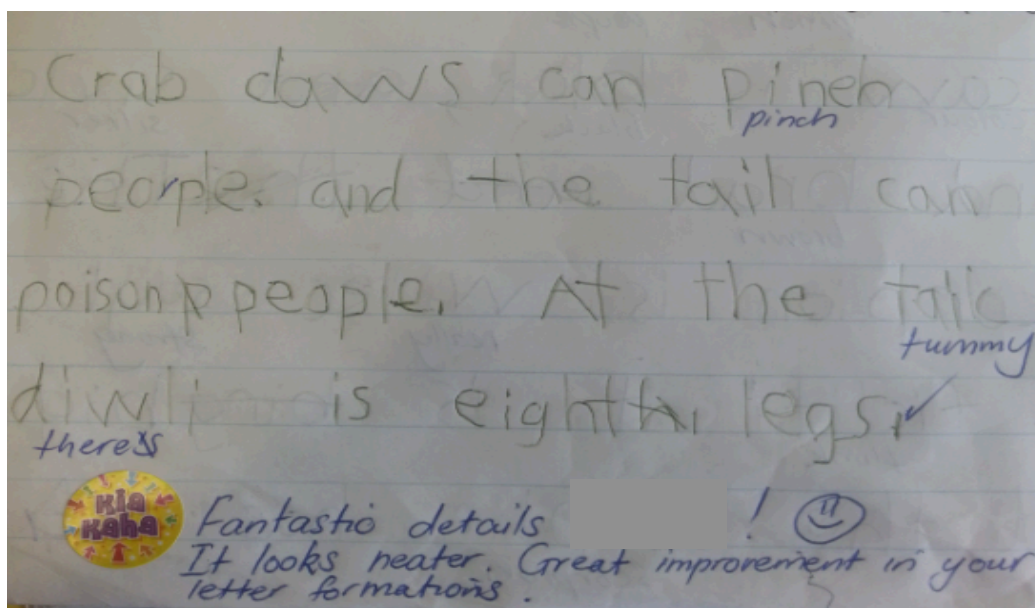 Crab claws can pineh
pinch
peorple. and the tail can
poison p people. At the
tummy
is eighth legs.
there is
Kia
Kaha
Fantastic details !
It looks neater. Great improvement in your
letter formations.